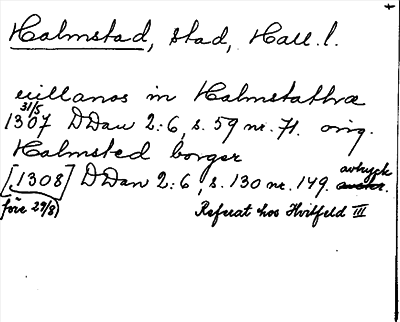 Halmstad, stad, Hall. l.
uillanos in Halmstathæ
31/5
1307 DDan 2:6, s. 59 nr. 71. orig.
Halmsted borger
[1308] DDan 2:6, s. 130 nr. 149. avtryck
före 29/8) Referat hos Hvitfeld III